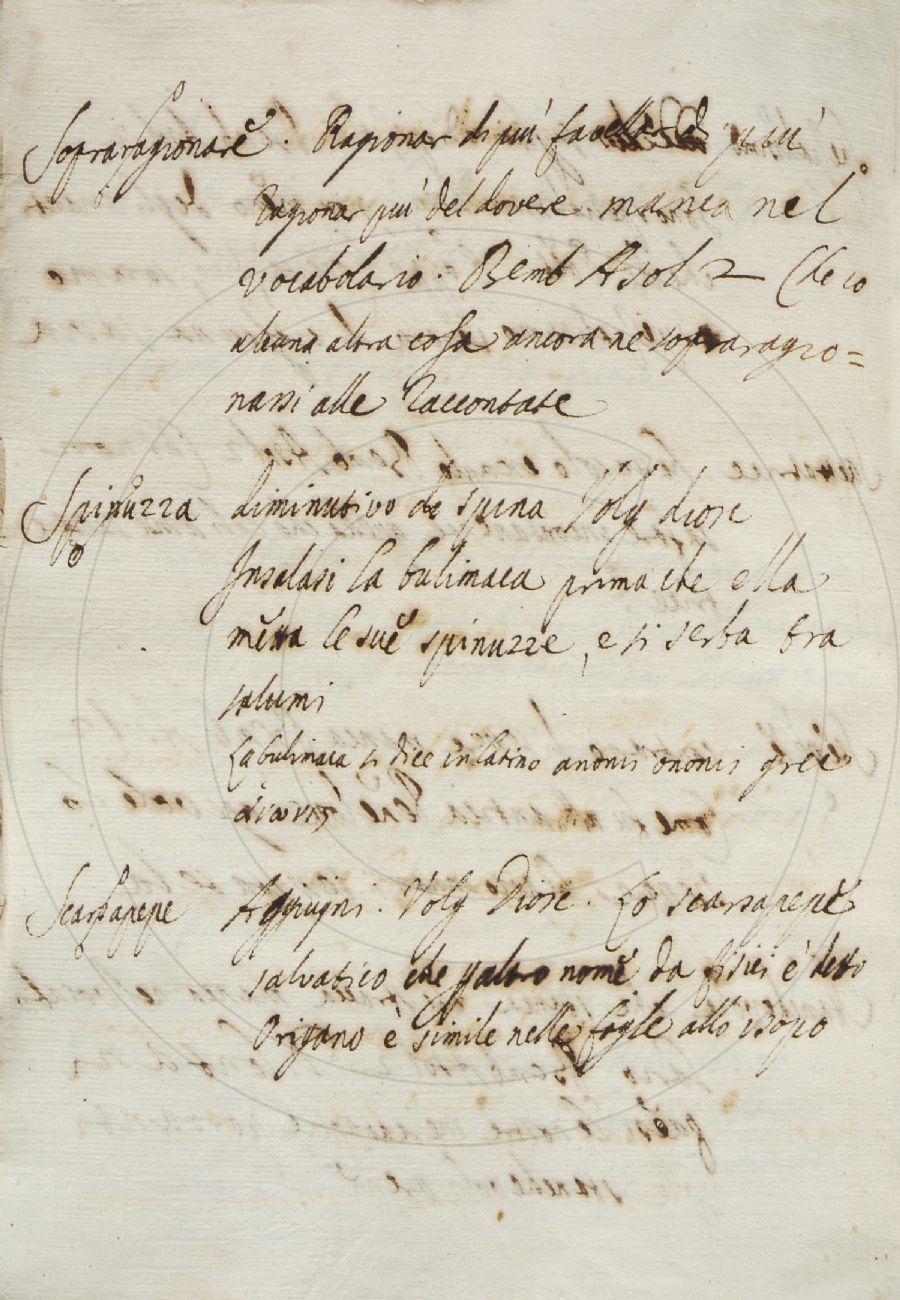 Sopraragionare. Ragionar di più
Ragionar più del dovere. manca nel
vocabolario. Bemb Asol 2
alcuna altra cosa ancora ne sopraragio=
narsi alle Raccontate
Spinuzza diminutivo di spina Volg diosc
Insalasi la bulimaca prima che ella
metta le sue spinuzze, e si serba tra
salumi
La bulimaca si dice in latino anonis ononis grec
Scarsapepe Aggiugni. Volg Diosc. Lo scarsapepe
salvatico che p altro nome da fisici è detto
Origano è simile nelle foglie allo isopo